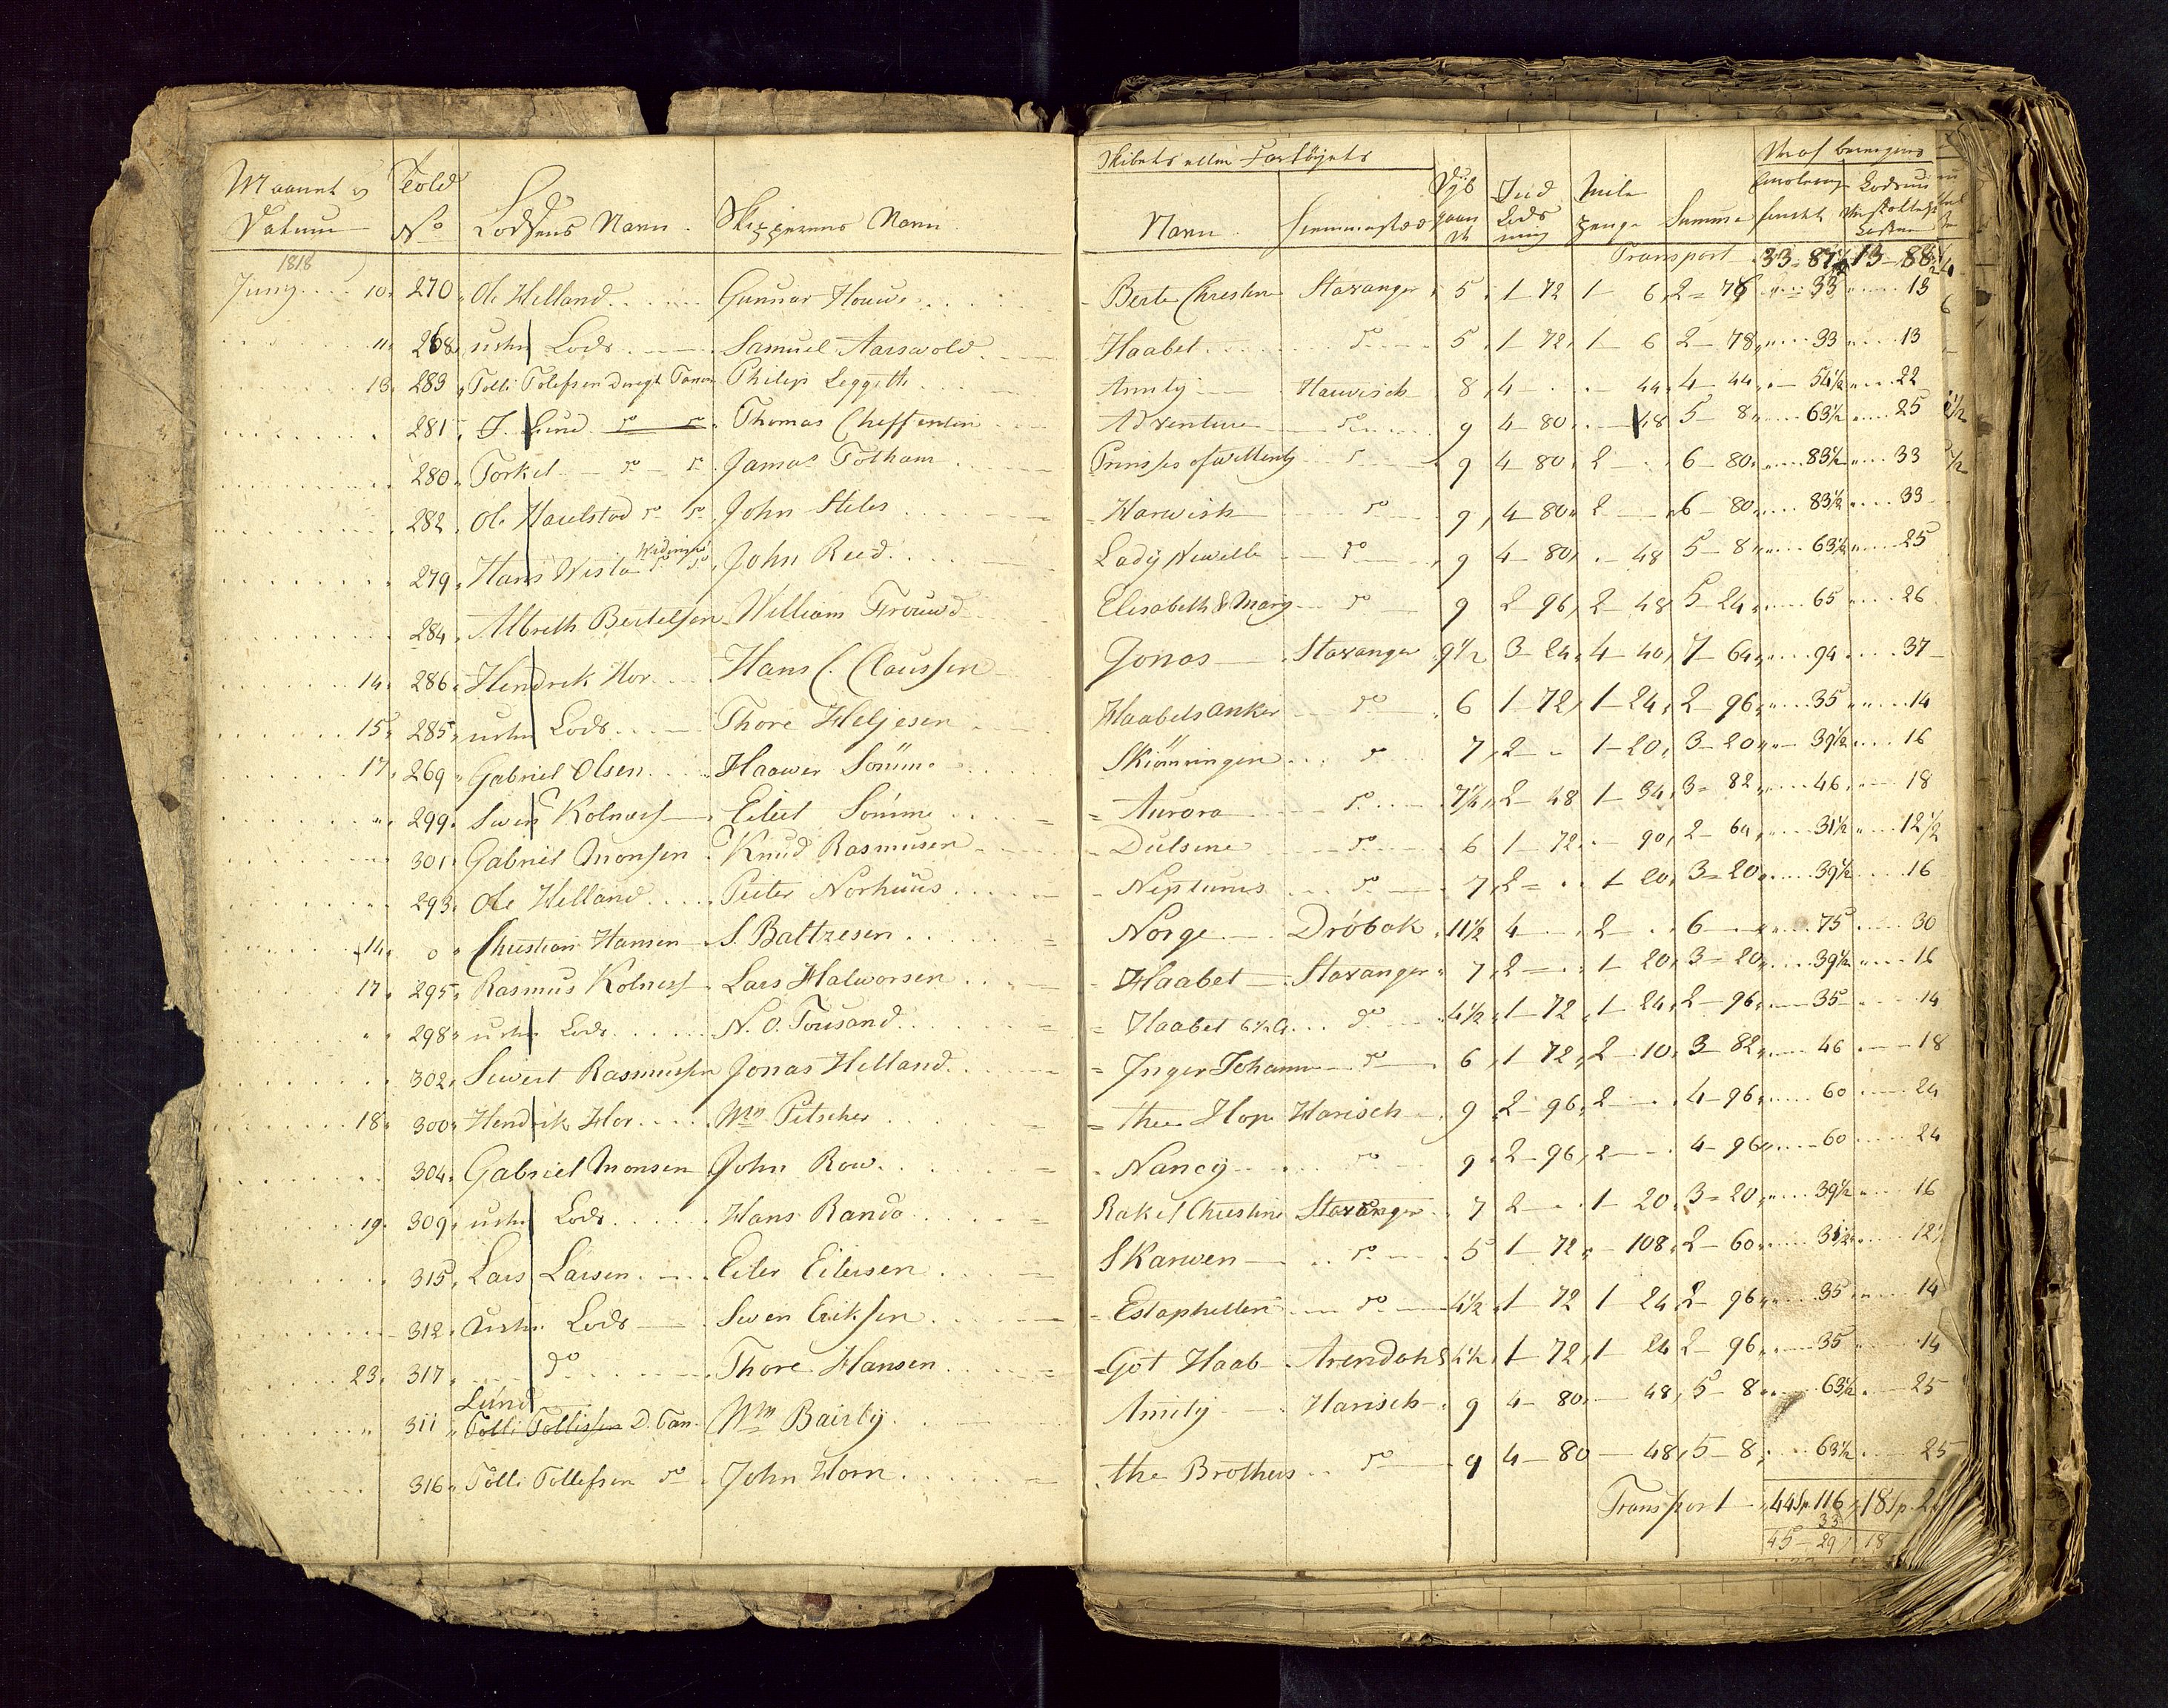 Maanet og Datum Told No Lodsens Navn Skipperens Navn
Skibets eller Fartøyets Navn Hiemmestæd Dyb gaaende Ind Lods ning Mile penge Summa
1818 Transport 33 - 87½ 13 - 88½
Juny 10 270 Ole Helland Gunnar Houwe Berte Christin Stavanger 5 1-72 1-6 2-78 33 13
11 268 Lods Samuel Aarswold Haabet do 5 1-72 1-6 2-78 33 13
13 283 Tolli Tolefsen Philip Leggett Amity Harwisch 8 4 44 4-44 54½ 22
281 J. Lund do do Thomas Cheffenten Adventure do 9 4-80 48 5-8 63½ 25
280 Torkel do do James Totham do 9 4-80 2 6-80 83½ 33
282 Ole Haulstad do do John Stiles Harwish do 9 4-80 2 6-80 83½ 33
279 Hans Wistø do do John Reed Lady Newille do 9 4-80 48 5-8 63½ 25
284 Albreth Bertelsen William Frouwd Elisabeth & Mary do 9 2-96 2-48 5-24 65 26
14 286 Hendrik Hor Hans C. Claussen Jonas Stavanger 9½ 3-24 4-40 7-64 94 37
15 285 Lods Thore Heljesen Haabets anker do 6 1-72 1-24 2-96 35 14
17 269 Gabriel Olsen Haawer Sömme Skiönningen do 7 2 1-20 3-20 39½ 16
299 Swen Kolness Eilert Sömme Aurora do 7½ 2-48 1-34 3-82 46 18
301 Gabriel Monsen Knud Rasmusen Dulsine do 6 1-72 90 2-64 31½ 12½
293 Ole Helland Peter Norhuus Neptunus do 7 2 1-20 3-20 39½ 16
14 0 Christian Hansen S. Baltzesen Norge Dröbak 11½ 4 2 6 75 30
17 295 Rasmus Kolness Lars Halworsen Haabet Stavanger 7 2 1-20 3-20 39½ 16
298 Lods N. O. Tousand Haabet do 4½ 1-72 1-24 2-96 35 14
302 Siwert Rasmussen Jonas Helland Inger Johanne do 6 1-72 2-10 3-82 46 18
18 300 Hendrik Hor Wm Pitscher the Hope Harisch 9 2-96 2 4-96 60 24
304 Gabriel Monsen John Row Nancy do 9 2-96 2 4-96 60 24
19 309 Lods Hans Randa Rakel Christine Stavanger 7 2 1-20 3-20 39½ 16
315 Lars Larsen Eiler Eilersen Skarwen do 5 1-72 108 2-60 31½ 12½
312 Lods Swen Eriksen Estaphetten do 4½ 1-72 1-24 2-96 35 14
23 317 do Thore Hansen Got Haab Arendahl 4½ 1-72 1-24 2-96 35 14
Lund
311 Tolli Tollissen D. Tan. Wm Bairly Amity Harisch 9 4-80 48 5-8 63½ 25
316 Tolli Tollefsen do John Horn the Brothers do 9 4-80 48 5-8 63½ 25
Transport 44 Sp. 116 18 Sp. 2
33
45-29 18